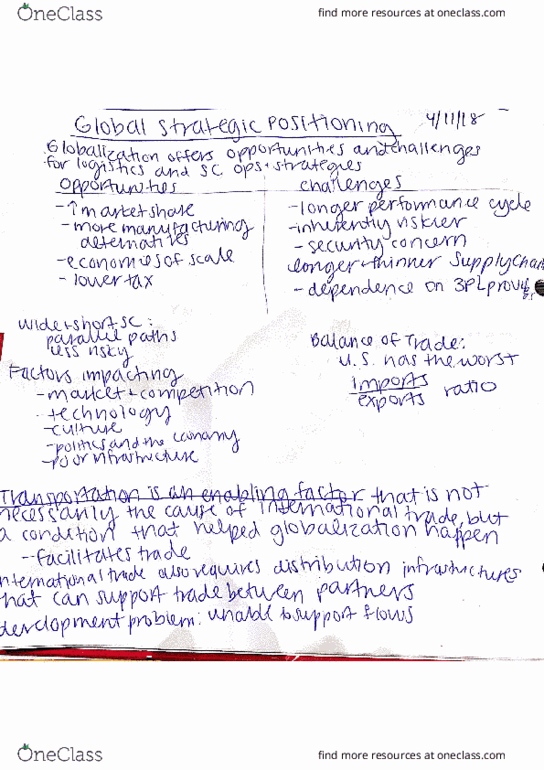 OneClass
find more resources at oneclass.com
Global Strategic Positioning 4/11/18
Globalization offers opportunities and challenges
for logistics and SC ops + strategies
Opportunities
- ↑ market share
- more manufacturing
alternatives
- economies of scale
- lower tax
Challenges
- longer performance cycle
- inherently riskier
- security concern
longer + thinner Supply Chain
- dependence on 3PL
Wide + short SC:
parallel paths
less risky
Factors impacting
- market + competition
- technology
- culture
- politics and the economy
- poor infrastructure
Balance of Trade:
U.S. has the worst
imports
exports ratio
Transportation is an enabling factor that is not
necessarily the cause of International trade, but
a condition that helped globalization happen
- facilitates trade
nternational trade also requires distribution infrastructures
that can support trade between partners
development problem: unable to support flows
OneClass
find more resources at oneclass.com